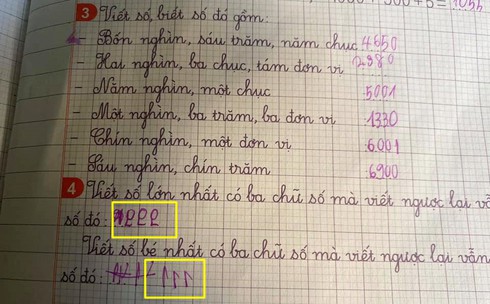 3 Viết số, biết số đó gồm:
- Bốn nghìn, sáu trăm, năm chục 4650
- Hai nghìn, ba chục, tám đơn vị 2980
- Năm nghìn, một chục 5001
- Một nghìn, ba trăm, ba đơn vị 1330
- Chín nghìn, một đơn vị 6001
- Sáu nghìn, chín trăm 6900
4 Viết số lớn nhất có ba chữ số mà viết ngược lại
số đó:
Viết số bé nhất có ba chữ số mà viết ngược lại vẫn
số đó: 111